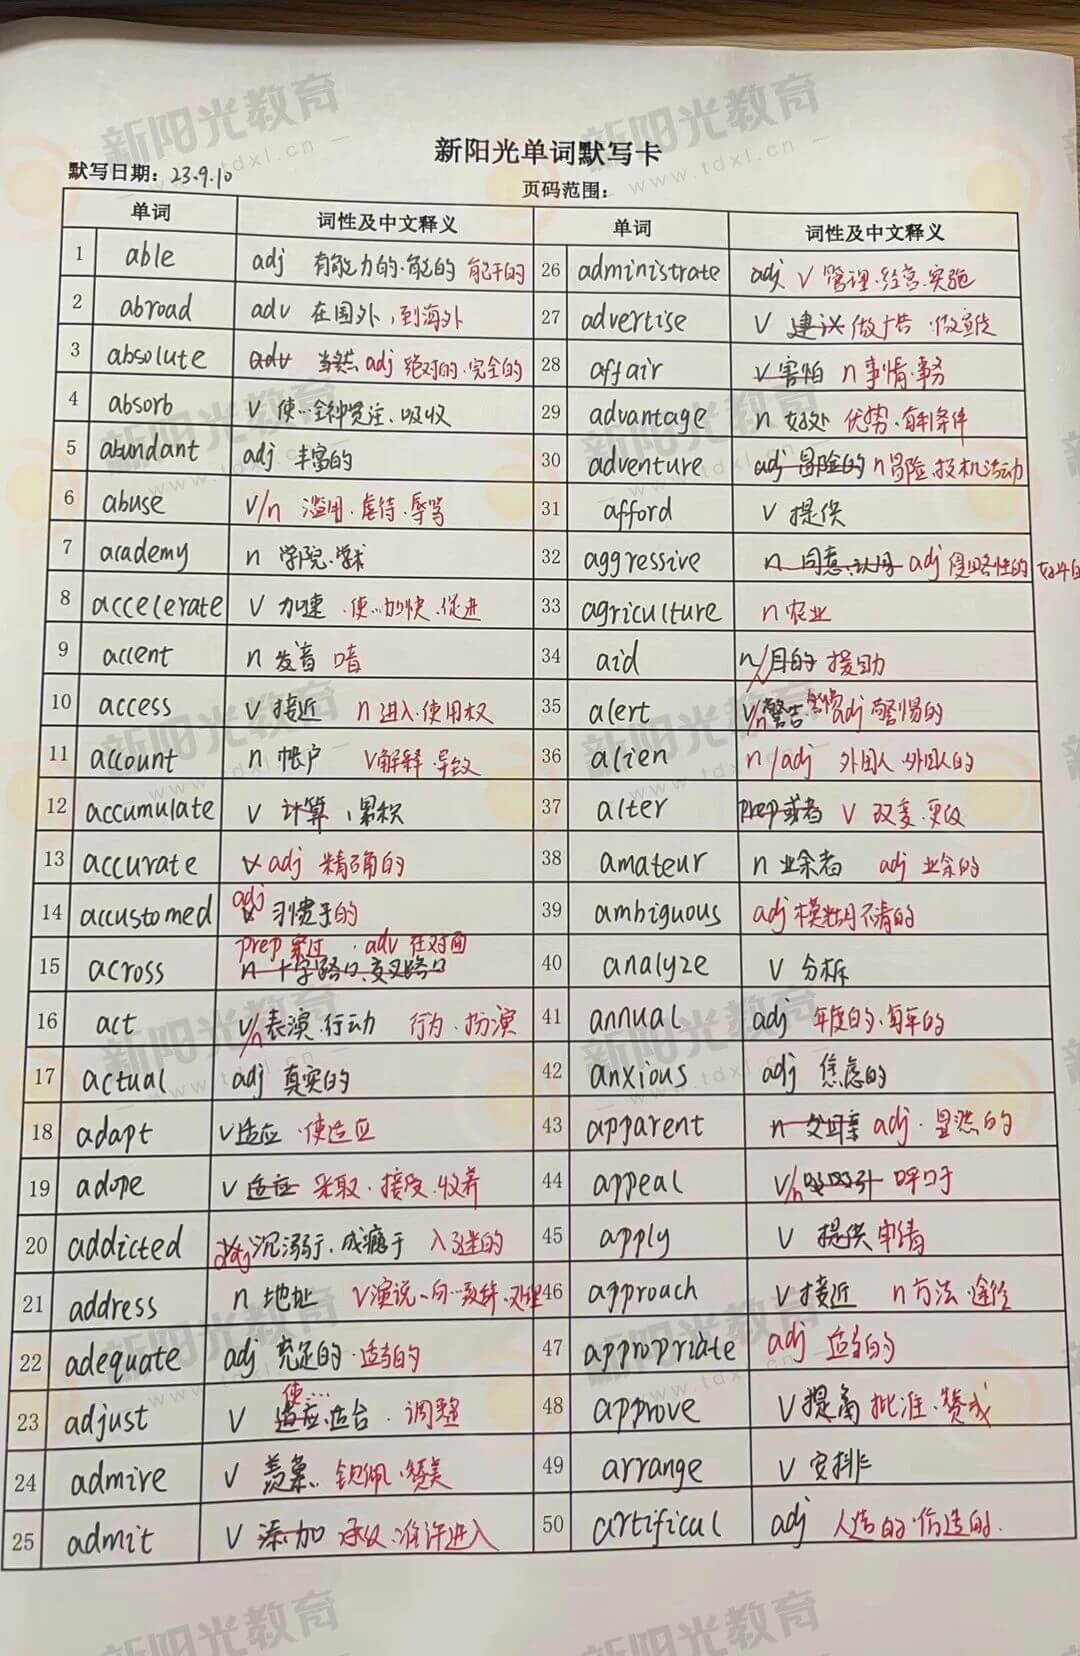 新阳光单词默写卡
默写日期：23.9.10 页码范围：
单词 词性及中文释义 单词 词性及中文释义
1 able adj 有能力的.能的 能干的 26 administrate adj v 管理.经营.实施
2 abroad adv 在国外,到海外 27 advertise v 建议 做广告.做宣传
3 absolute adv 当然 adj 绝对的.完全的 28 affair v 害怕 n 事情.事务
4 absorb v 使…全神贯注.吸收 29 advantage n 好处 优势.有利条件
5 abundant adj 丰富的 30 adventure adj 冒险的 n 冒险.投机活动
6 abuse v/n 滥用.虐待.辱骂 31 afford v 提供
7 academy n 学院.学术 32 aggressive n 同意.认同 adj 侵略性的 好斗的
8 accelerate v 加速.使…加快.促进 33 agriculture n 农业
9 accent n 发音 口音 34 aid n/ 目的 援助
10 access v 接近 n 进入.使用权 35 alert v/n 警告 adj 警惕的
11 account n 帐户 v 解释.导致 36 alien n/adj 外国人 外国人的
12 accumulate v 计算,累积 37 alter prep 或者 v 改变.更改
13 accurate v adj 精确的 38 amateur n 业余者 adj 业余的
14 accustomed v adj 习惯于的 39 ambiguous adj 模糊不清的
15 across n 十字路口,交叉路口 prep 穿过.adv 在对面 40 analyze v 分析
16 act v/n 表演.行动 行为.扮演 41 annual adj 年度的.每年的
17 actual adj 真实的 42 anxious adj 焦虑的
18 adapt v 适应.使适应 43 apparent n 父母亲 adj.显然的
19 adope v 适应 采取.接受.收养 44 appeal v/n 吸引 呼吁
20 addicted adj 沉溺于.成瘾于 入迷的 45 apply v 提供 申请
21 address n 地址 v 演说.向…致辞.处理 46 approach v 接近 n 方法.途径
22 adequate adj 充足的.适当的 47 appropriate adj 适当的
23 adjust v 使… 适应.适合.调整 48 approve v 提高 批准.赞成
24 admire v 羡慕.钦佩.赞美 49 arrange v 安排
25 admit v 添加 承认.准许进入 50 artifical adj 人造的.伪造的.